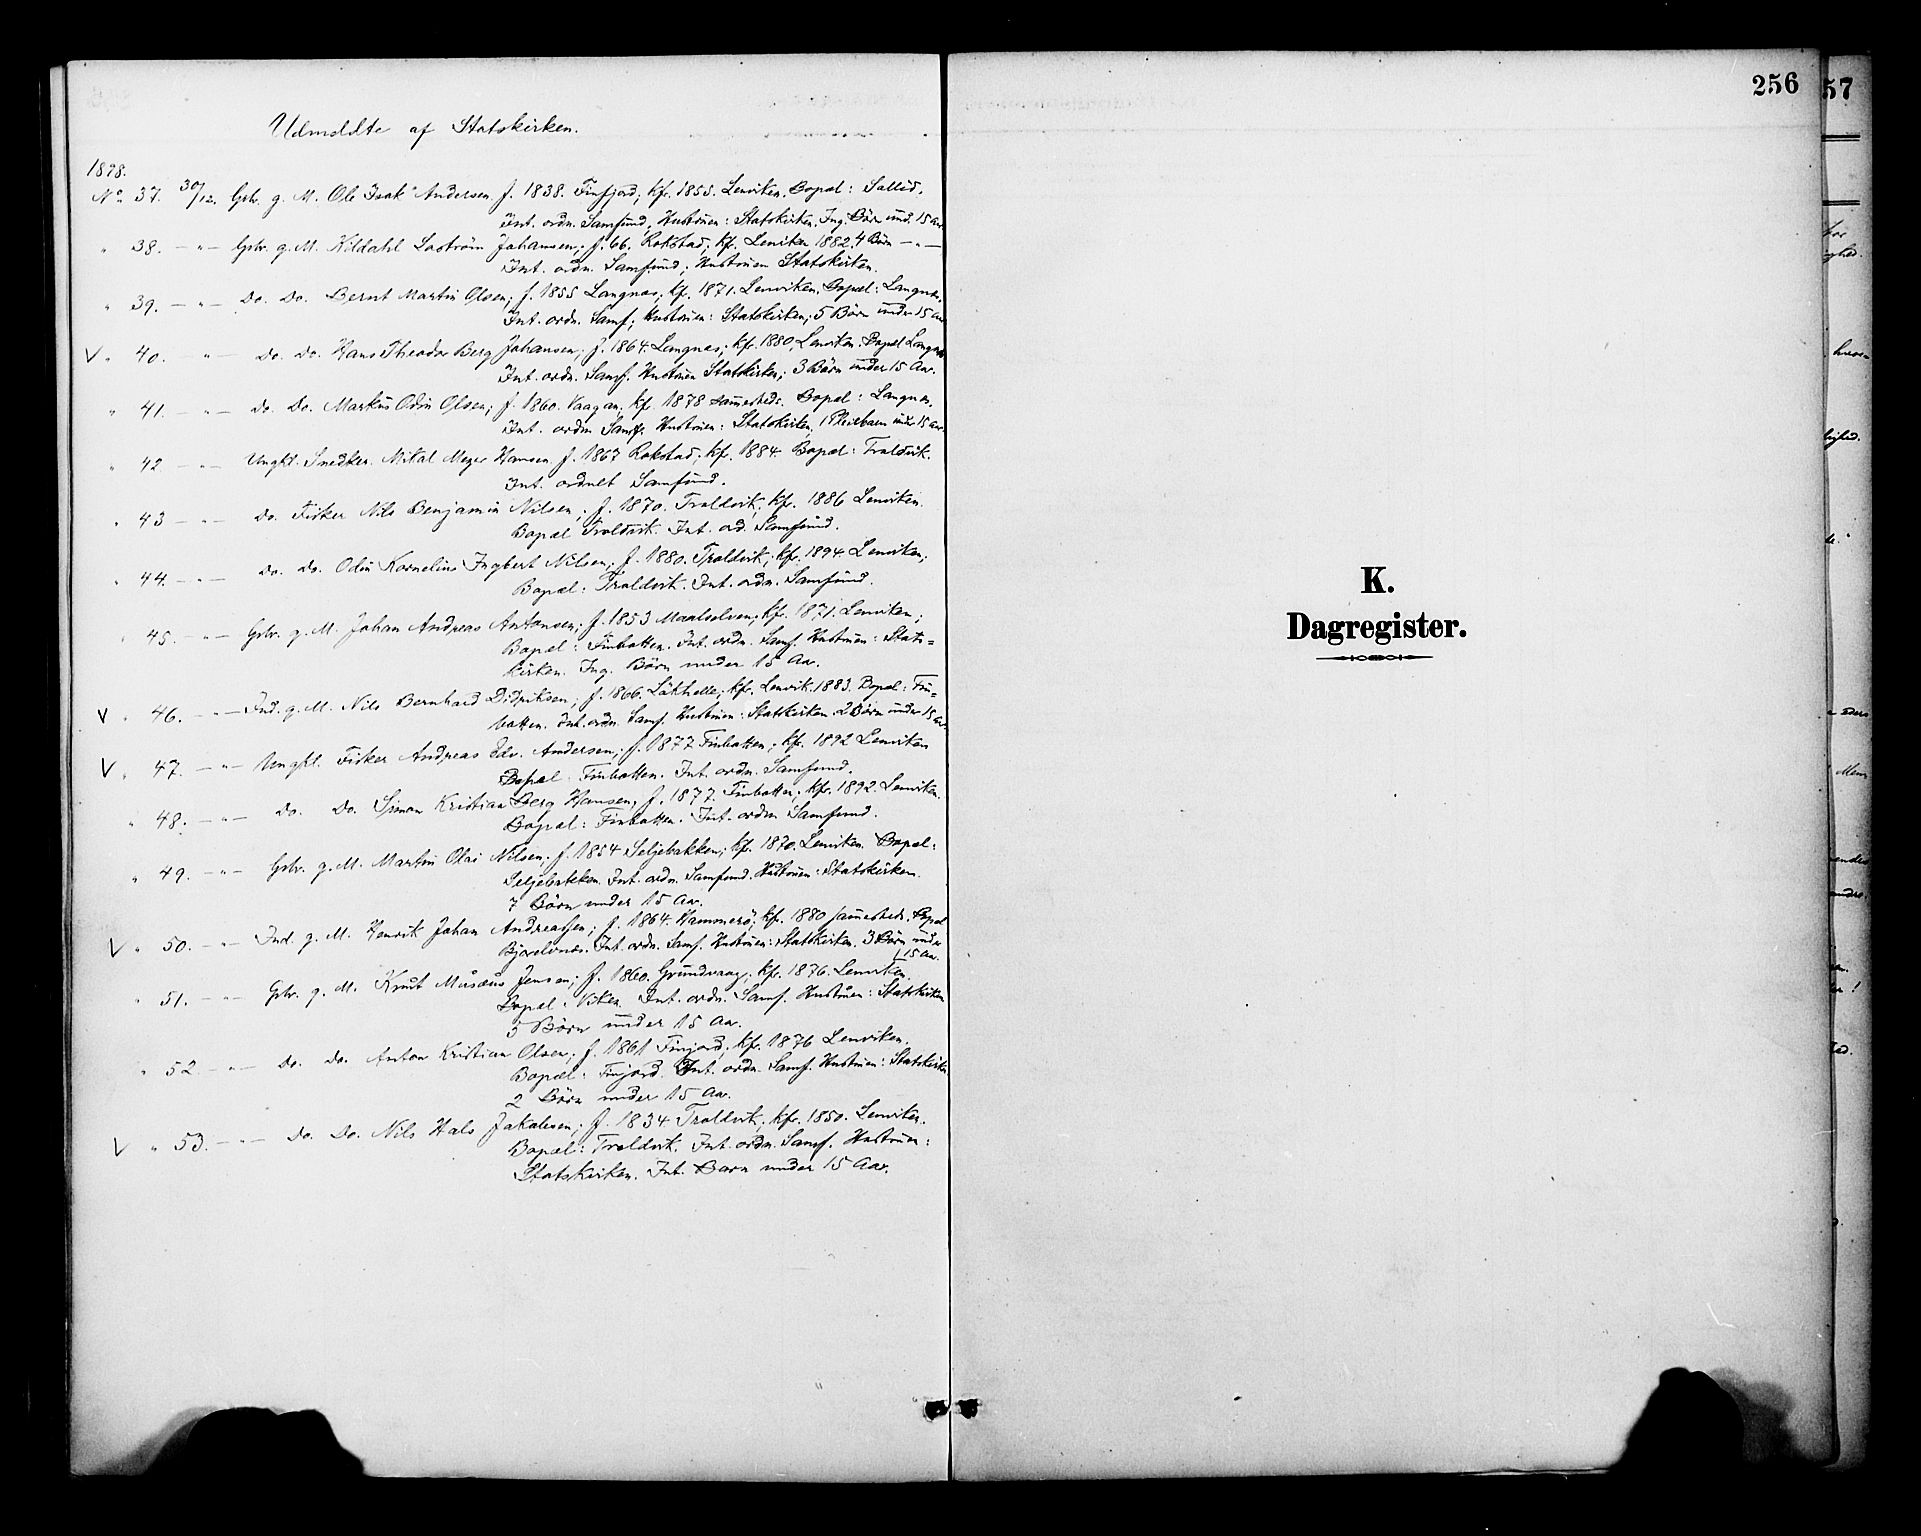 Udmeldte af Statskirken.
1898.
No 37. 30/12. Gbr. g. M. Ole Isak Andersen f. 1838. Finfjord; kfr. 1855. Lenviken. Bopæl:
Int. ordn. Samfund, Hustruen: Statskirken. Ing. Børn und. 15 Aar
" 38. — " — Gbr. g. M. Kildahl Johansen; f. 66. Rokstad; kf. Lenviken 1882, 4 Børn — " —
Int. ordn. Samfund; Hustruen Statskirken.
" 39. — " — Do. Do. Bernt Martin Olsen; f. 1855 Langnæs; kf. 1871. Lenviken. Bopæl: Langnæs.
Int. ordn. Samf; Hustruen: Statskirken; 5 Børn under 15 Aar
V " 40. " — Do. Do. Hans Theodor Berg Johansen; f. 1864. Langnes; kfr. 1880, Lenviken. Bopæl Langnes
Int. ordn. Samf. Hustruen Statskirken; 3 Børn under 15 Aar.
" 41. — " — Do. Do. Markus Odin Olsen; f. 1860. Vaagan; kf. 1878 sammesteds. Bopæl: Langnes.
Int. ordn Samf. Hustruen: Statskirken, 1 Pleiebarn under 15 Aar.
" 42 — " — Ungkl. Snedker. Mikal Meyer Hansen f. 1867 Rokstad; kf. 1884. Bopæl: Troldvik.
Int. ordnet Samfund.
" 43 — " — Do. Fisker Nils Benjamin Nilsen; f. 1870. Troldvik; kfr. 1886 Lenviken.
Bopæl Troldvik. Int. ord. Samfund.
" 44. — " — Do. Do. Odin Kornelius Ingbert Nilsen; f. 1880. Troldvik; kfr. 1894 Lenviken;
Bopæl: Troldvik. Int. ordn. Samfund.
" 45. — " — Gbr. g. M. Johan Andreas Antonsen; f. 1853 Maalselven; kfr. 1871. Lenviken;
Bopæl: Finbatten. Int. ordn. Samf. Hustruen: Stats=
kirken. Ing. Børn under 15 Aar.
V " 46. — " — Ind. g. M. Nils Bernhard Didriksen; f. 1866. kfr. Lenvik. 1883. Bopæl: Fin=
batten. Int. ordn. Samf. Hustruen: Statskirken. 2 Børn under 15 Aar.
V " 47. — " — Ungkl. Fisker Andreas Edv. Andersen; f. 1877 Finbatten; kfr. 1892 Lenviken
Bopæl Finbatten. Int. ordn. Samfund.
" 48. — " — Do. Do. Simon Kristian Berg Hansen, f. 1877. Finbatten; kfr. 1892. Lenviken.
Bopæl: Finbatten. Int. ordn Samfund.
" 49. — " — Gbr. g. M. Martin Olai Nilsen; f. 1854 Seljebakken; kfr. 1870. Lenviken. Bopæl:
Seljebakken. Int. ordn. Samfund. Hustruen: Statskirken.
7 Børn under 15 Aar.
V " 50. — " — Ind. g. M. Henrik Johan Andreassen; f. 1864. Hammerø; kf. 1880 sammesteds. Bopæl
Bjorelvnes. Int. ordn. Samf. Hustruen: Statskirken. 3 Børn under
15 Aar.
" 51. — " — Gbr. g. M. Knut Musæus Jensen; f. 1860. Grundvaag; kf. 1876. Lenviken.
Bopæl: Viken. Int. ordn. Samf. Hustruen: Statskirken
5 Børn under 15 Aar.
" 52 — " — Do. Do. Anton Kristian Olsen; f. 1861 Finjord; kf. 1876 Lenviken.
Bopæl: Finjord. Int. ordn. Samf. Hustruen: Statskirken
2 Børn under 15 Aar.
V " 53. — " — Do. Do. Nils Hals Jakobsen; f. 1834 Troldvik; kfr. 1850. Lenviken.
Bopæl: Troldvik. Int. ordn. Samf. Hustruen:
Statskirken. Int. Barn under 15 Aar.
256
K.
Dagregister.
57